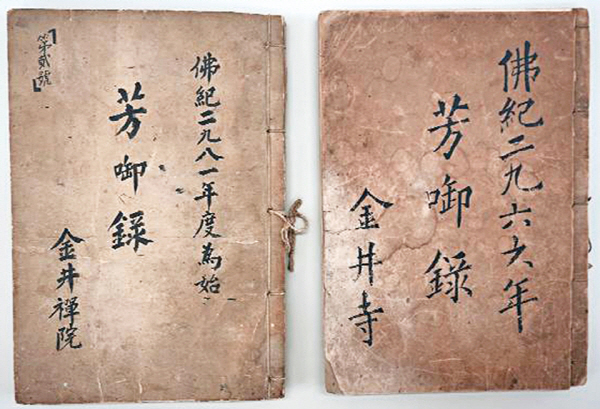 佛紀二九六六年
芳啣錄
金井寺
佛紀二九八一年度為始
芳啣錄
金井禪院
「第貳號」